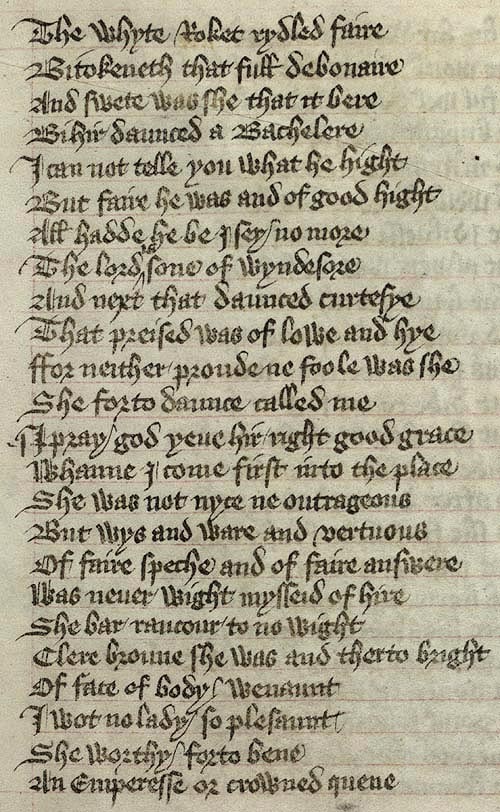 The whyte Roket rydled faire
Bitokeneth that full debonaire
And swete was she that it bere
Bi hir daunced a Bachelere
I can not telle you what he hight
But faire he was and of good hight
All hadde he be I sey / no more
The lordis sone of wyndesore
And next that daunced curtesye
That preised was of lowe and hye
ffor neither proude ne foole was she
She forto daunce called me
¶ I pray / god yeue hir right good grace
Whanne I come first into the place
She was not nyce ne outrageous
But wys and ware and vertuous
Of faire speche and of faire answere
Was neuer wight mysseid of hire
She bar rancour to no wight
Clere broune she was and therto bright
Of face of body / wenaunt
I wot no lady / so plesaunt
She worthy / forto bene
An Emperesse or crowned quene